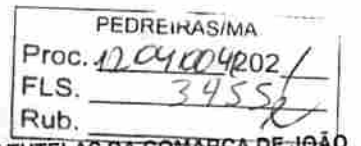 PEDREIRAS/MA
Proc. 1204004/202 1
FLS. 3455
Rub.
TUTELAS DA COMARCA DE JOÃO